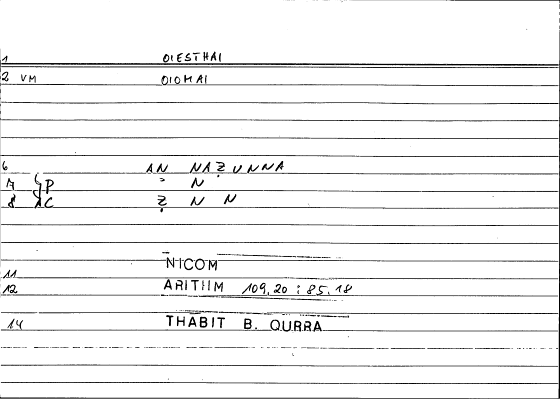 1 OIESTHAI
2 VM OIOMAI
6 AN NAẒUNNA
7 GP N
8 AC Ẓ N N
11 NICOM
12 ARITHM 109,20 : 85.18
14 THABIT B. QURRA